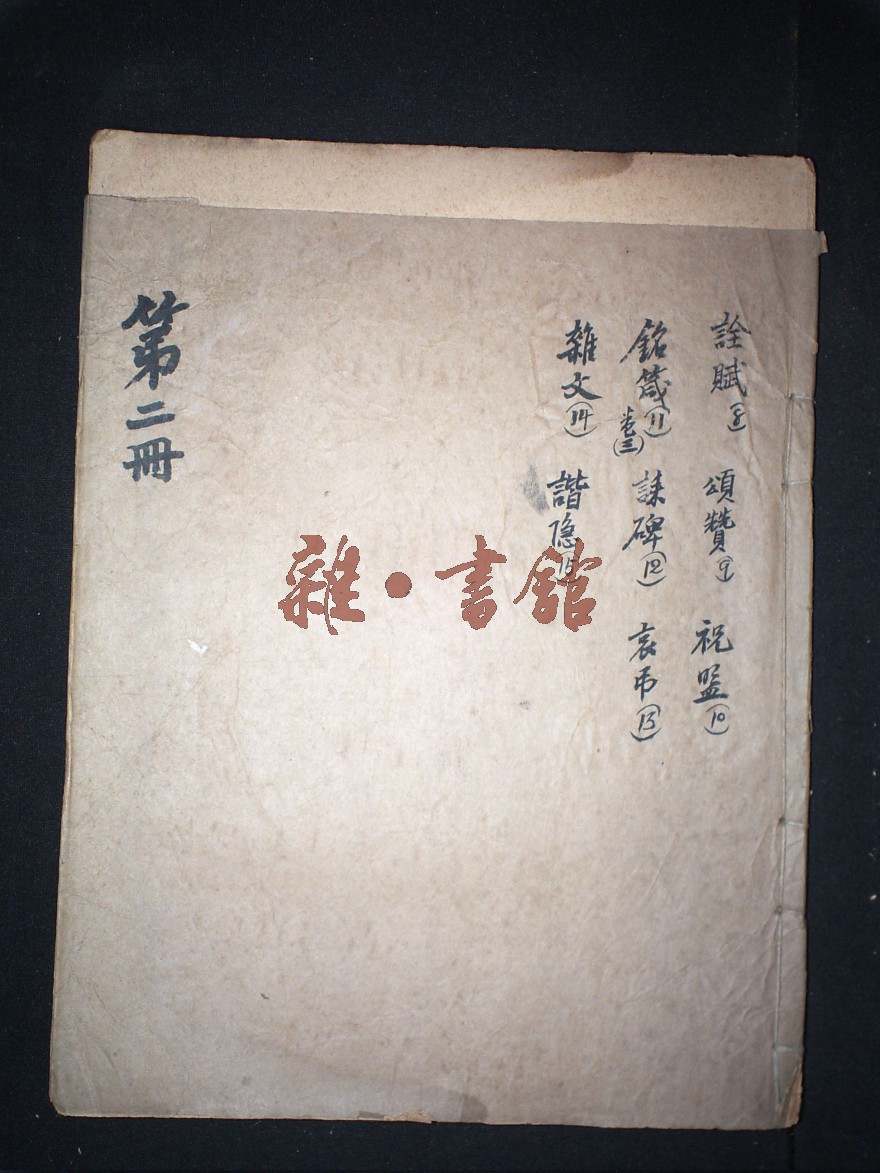 詮賦(8) 頌贊(9) 祝盟(10)
銘箴(11) 誄碑(12) 哀弔(13)
卷(三)
雜文(14) 諧隱(15)
第二冊
雜·書館